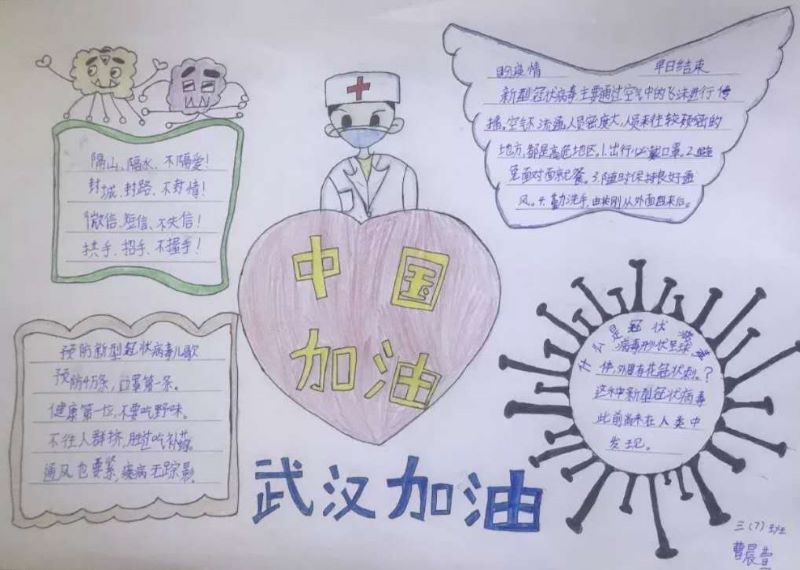 隔山、隔水、不隔爱！
封城、封路、不封情！
微信、短信、不失信！
拱手、招手、不握手！
中国
加油
疫情 早日结束
新型冠状病毒主要通过空气中的飞沫进行传
播。空气不流通，人员密度大，人员来往较频密的
地方，都是高危地区。1.出行必戴口罩。2.避
免面对面就餐。3.随时保持良好通
风。4.勤洗手，由其刚从外面回来后。
预防新型冠状病毒儿歌
预防千万条，口罩第一条。
健康第一位，不要吃野味。
不往人群挤，胜过吃补药。
通风也要紧，疾病无踪影。
什么是冠状病毒？
病毒形状呈球
体，外围有花冠状刺。
这种新型冠状病毒
此前尚未在人类中
发现。
武汉加油
三(7)班
曹晨